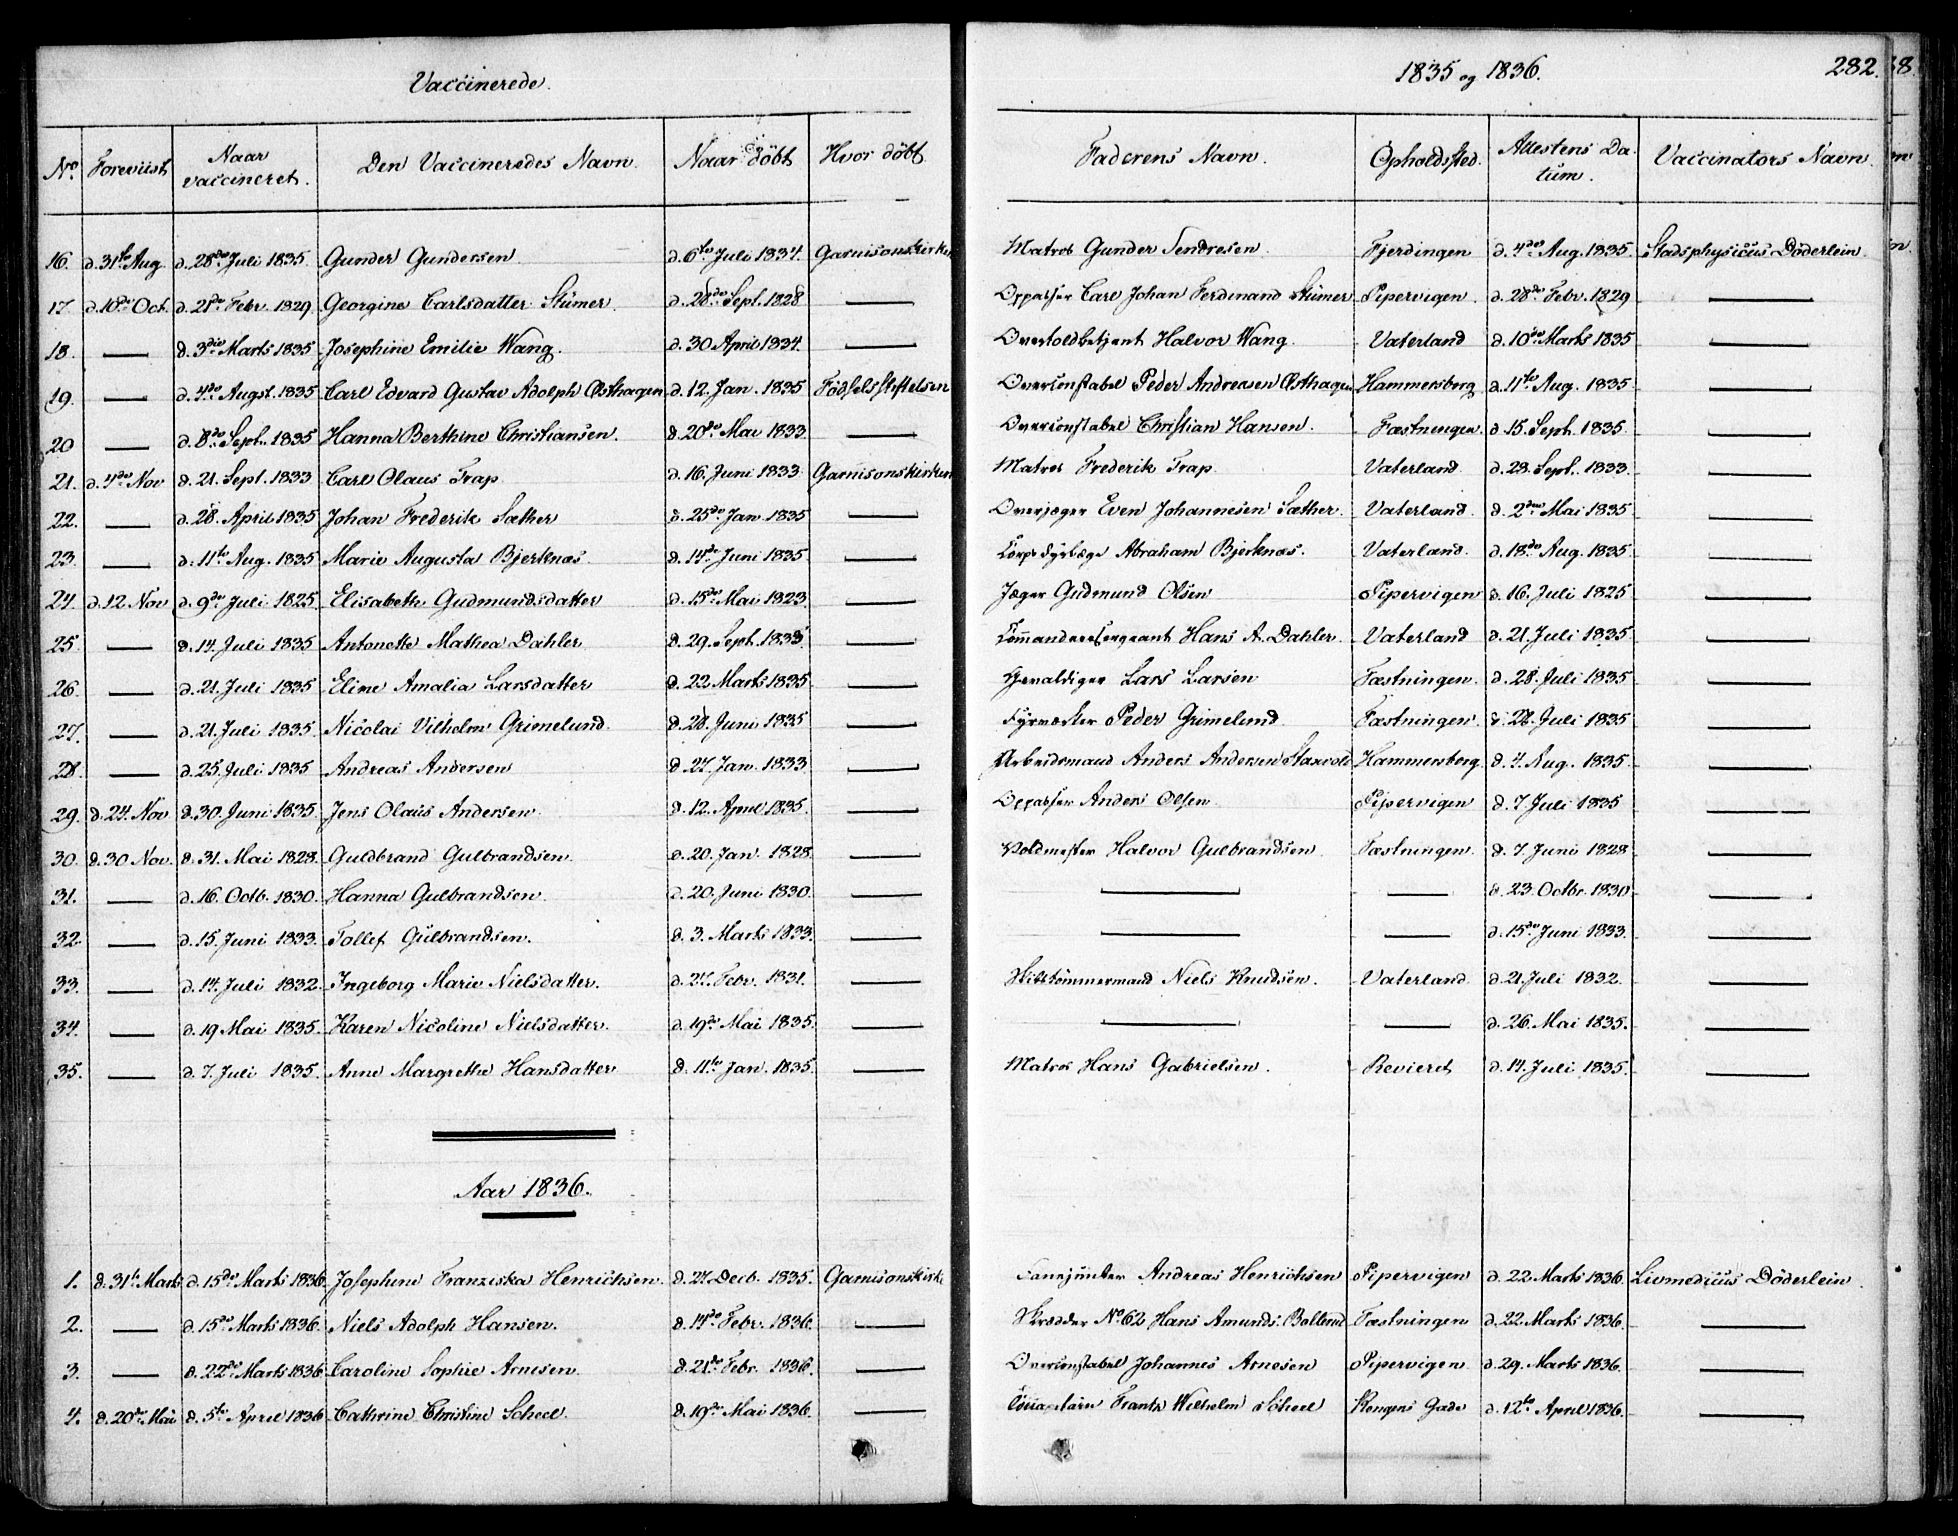 Vaccinerede.
1835 og 1836.
282.
No. Foreviist Naar vaccineret. Den Vaccineredes Navn. Naar døbt Hvor døbt Faderens Navn. Opholdsted. Attestens Datum. Vaccinators Navn.
16. d. 31te Aug. d. 28de Juli 1835. Gunder Gundersen. d. 6te Juli 1834. Garnisonskirken Matros Gunder Fjerdingen d. 4de Aug. 1835. Stadsphysicus Döderlein
17. d. 10de Oct. d. 21de Febr. 1829 Georgine Carlsdatter Stümer. d. 28de Sept. 1828 — Oppasser Carl Johan Ferdinand Stümer Pipervigen. d. 28de Febr. 1829 —
18. — d. 3die Marts 1835 Josephine Emilie Wang. d. 30 April 1834. — Overtoldbetjent Halvor Wang. Vaterland d. 10de Marts 1835 —
19. — d. 4de Augst. 1835 Carl Edvard Gustav Adolph Østhagen d. 12. Jan. 1835 Fødselsstiftelsen Overconstabel Peder Andreasen Østhagen Hammersborg d. 11te Aug. 1835. —
20 — d. 8de Sept. 1835 Hanna Berthine Christiansen. d. 20de Mai 1833 — Overconstabel Christian Hansen. Fæstningen. d. 15. Sept. 1835. —
21. d. 4de Nov d. 21. Sept. 1833 Carl Olaus Trap d. 16. Juni 1833 Garnisonskirken Matros Frederik Trap. Vaterland d. 28. Sept. 1833. —
22. — d. 28. April 1835 Johan Frederik Sæther d. 25de Jan 1835 — Overjæger Even Johannesen Sæther. Vaterland. d. 2den Mai 1835 —
23. — d. 11te Aug. 1835 Marie Augusta Bjerknæs. d. 14de Juni 1835 — Abraham Bjerknæs. Vaterland. d. 18de Aug. 1835 —
24. d. 12 Nov d. 9de Juli 1825 Elisabeth Gudmundsdatter d. 15de Mai 1823 — Jæger Gudmund Olsen Pipervigen d. 16. Juli 1825 —
25 — d. 14. Juli 1835 Antonette Mathea Dahler d. 29. Sept. 1833. — Commandeersergeant Hans A. Dahler. Vaterland d. 21. Juli 1835 —
26. — d. 21. Juli 1835 Eline Amalia Larsdatter d. 22 Marts 1835 — Gevaldiger Lars Larsen Fæstningen. d. 28. Juli 1835 —
27. — d. 21. Juli 1835. Nicolai Vilhelm Grimelund. d. 28. Juni 1835 — Fyrværker Peder Grimelund. Fæstningen. d. 28. Juli 1835 —
28. — d. 25. Juli 1835 Andreas Andersen d. 27. Jan. 1833 — Arbeidsmand Anders Andersen Hammersborg d. 4. Aug. 1835. —
29. d. 24. Nov d. 30. Juni 1835 Jens Olaus Andersen. d. 12. April 1835. — Oppasser Anders Olsen Pipervigen d. 7. Juli 1835 —
30. d. 30 Nov. d. 31. Mai 1828. Guldbrand Gulbrandsen. d. 20. Jan. 1828. — Voldmester Halvor Gulbrandsen Fæstningen. d. 7. Juni 1828 —
31. — d. 16. Octb. 1830. Hanna Gulbrandsen d. 20. Juni 1830. — — — d. 23. Octbr. 1830 —
32. — d. 15. Juni 1833. Tollef Gulbrandsen. d. 3. Marts 1833. — — — d. 15de Juni 1833. —
33. — d. 14. Juli 1832. Ingeborg Marie Nielsdatter. d. 27. Febr. 1831. — Niels Knudsen. Vaterland d. 21. Juli 1832. —
34. — d. 19 Mai 1835. Karen Nicoline Nielsdatter. d. 19de Mai 1835. — — — d. 26. Mai 1835. —
35. — d. 7. Juli 1835. Anne Margrethe Hansdatter d. 11te Jan. 1835. — Matros Hans Gabrielsen. Revieret d. 14. Juli 1835. —
Aar 1836.
1. d. 31te Marts d. 15de Marts 1836. Josephine Franziska Henrichsen. d. 27. Decb. 1835. Garnisonskirk Fanejunker Andreas Henrichsen Pipervigen d. 22 Marts 1836. Livmedicus Döderlein.
2. — d. 15de Marts 1836. Niels Adolph Hansen. d. 14de Febr. 1836. — Skrædder No. 62 Hans Amunds. Fæstningen d. 22. Marts 1836. —
3. — d. 22de Marts 1836 Caroline Sophie Arnesen. d. 21de Febr. 1836. — Overconstabel Johannes Arnesen Pipervigen d. 29. Marts 1836. —
4. d. 20de Mai d. 5te April 1836 Cathrine Christine Scheel. d. 19de Mai 1836. — Frantz Wilhelm Scheel Kongens Gade d. 12te April 1836. —